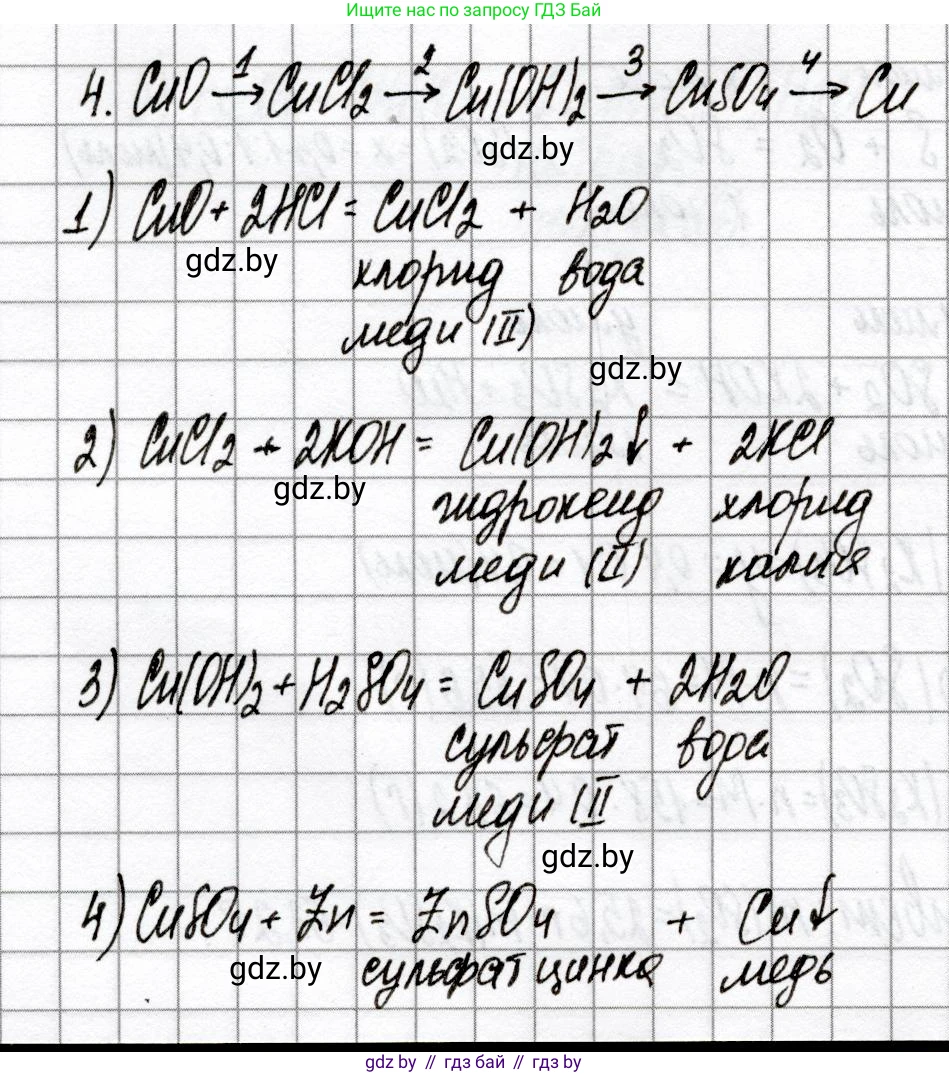 Ищите нас по запросу ГДЗ Бай
4. CuO —1→ CuCl₂ —2→ Cu(OH)₂ —3→ CuSO₄ —4→ Cu
gdz.by
1) CuO + 2HCl = CuCl₂ + H₂O
gdz.by
хлорид вода
меди (II)
gdz.by
2) CuCl₂ + 2KOH = Cu(OH)₂↓ + 2KCl
gdz.by
гидроксид хлорид
меди (II) калия
3) Cu(OH)₂ + H₂SO₄ = CuSO₄ + 2H₂O
сульфат вода
меди (II
gdz.by
4) CuSO₄ + Zn = ZnSO₄ + Cu↓
gdz.by
сульфат цинка медь
gdz.by // гдз бай // gdz.by